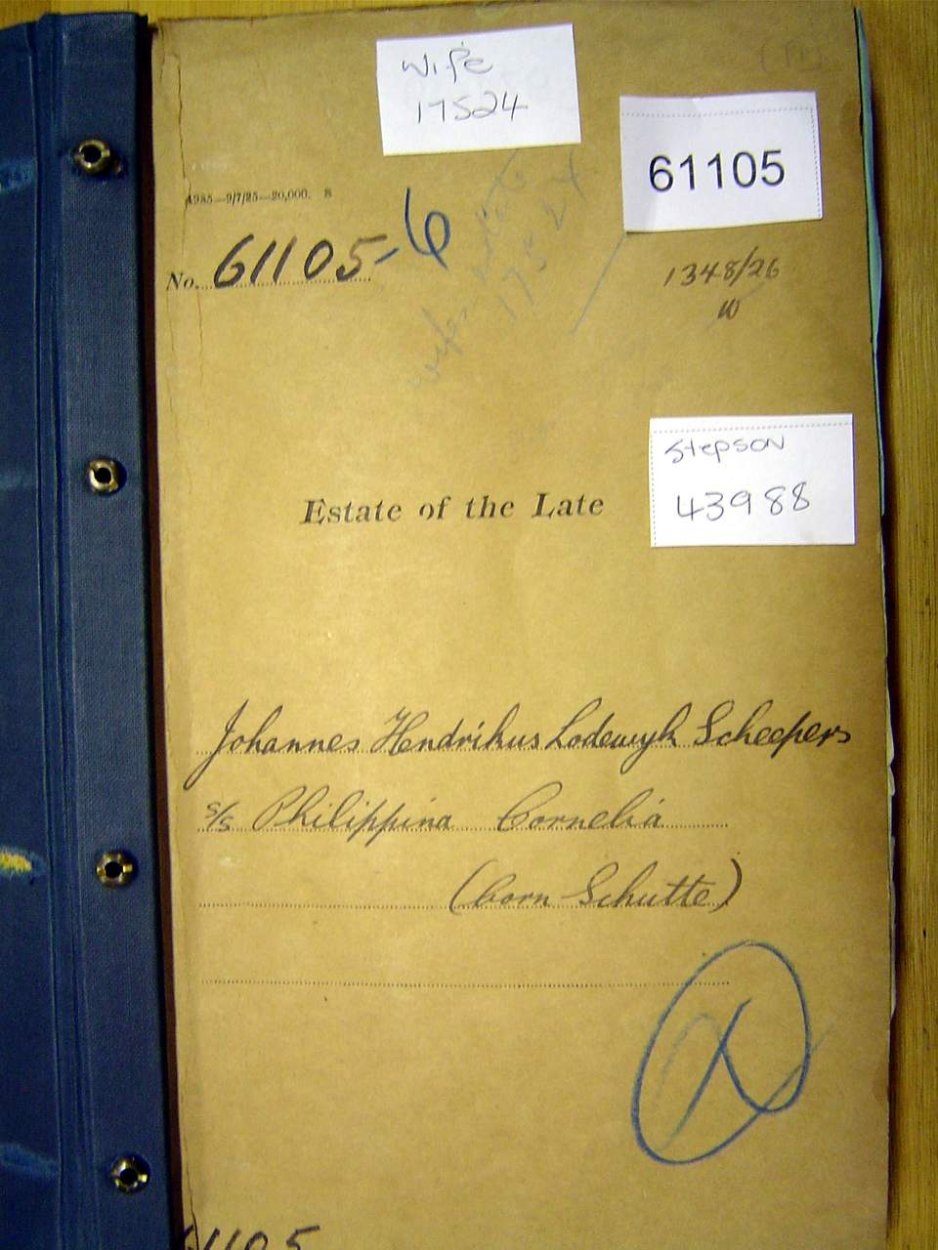 Wife
17524
61105
A985—9/7/25—20,000. S
No. 61105-6
1348/26
W
Stepson
43988
Estate of the Late
Johannes Hendrikus Lodewyk Scheepers
s/s Philippina Cornelia
(born Schutte)
61105